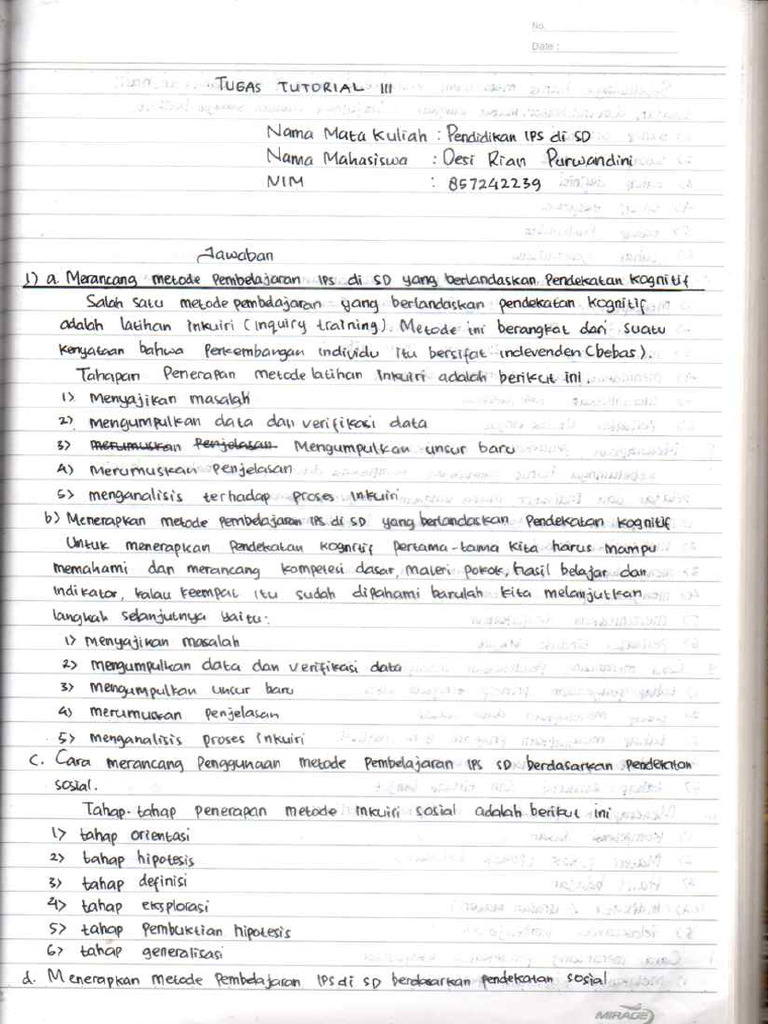 No.
Date :
TUGAS TUTORIAL III
Nama Mata Kuliah : Pendidikan IPS di SD
Nama Mahasiswa : Desi Rian Purwandini
NIM : 857242239
Jawaban
1) a. Merancang metode Pembelajaran IPS di SD yang berlandaskan Pendekatan Kognitif
Salah satu metode pembelajaran yang berlandaskan pendekatan kognitif
adalah latihan inkuiri (inquiry training). Metode ini berangkat dari suatu
kenyataan bahwa perkembangan individu itu bersifat indevenden (bebas).
Tahapan Penerapan metode latihan inkuiri adalah berikut ini.
1) menyajikan masalah
2) mengumpulkan data dan verifikasi data
3) merumuskan Penjelasan Mengumpulkan unsur baru
4) merumuskan penjelasan
5) menganalisis terhadap proses inkuiri
b) Menerapkan metode pembelajaran IPS di SD yang berlandaskan Pendekatan kognitif
Untuk menerapkan Pendekatan kognitif pertama-tama kita harus mampu
memahami dan merancang kompetesi dasar, materi pokok, hasil belajar dan
indikator, kalau keempat itu sudah dipahami barulah kita melanjutkan
langkah selanjutnya yaitu:
1) menyajikan masalah
2) mengumpulkan data dan verifikasi data
3) mengumpulkan unsur baru
4) merumuskan penjelasan
5) menganalisis proses inkuiri
c. Cara merancang Penggunaan metode Pembelajaran IPS SD berdasarkan pendekatan
sosial.
Tahap-tahap penerapan metode inkuiri sosial adalah berikut ini
1) tahap orientasi
2) tahap hipotesis
3) tahap definisi
4) tahap eksplorasi
5) tahap Pembuktian hipotesis
6) tahap generalisasi
d. Menerapkan metode Pembelajaran IPS di SD berdasarkan pendekatan sosial
MIRAGE